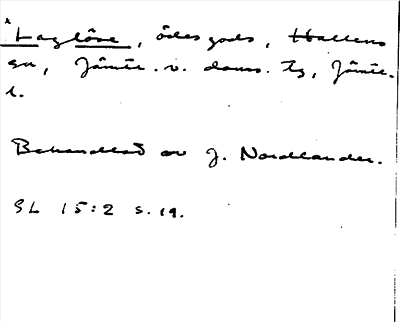 x Laglöse, ödesgods, Hallens
sn, Jämtl. v. doms. tg, Jämtl.
l.
Behandlat av J. Nordlander.
SL 15:2 s. 19.